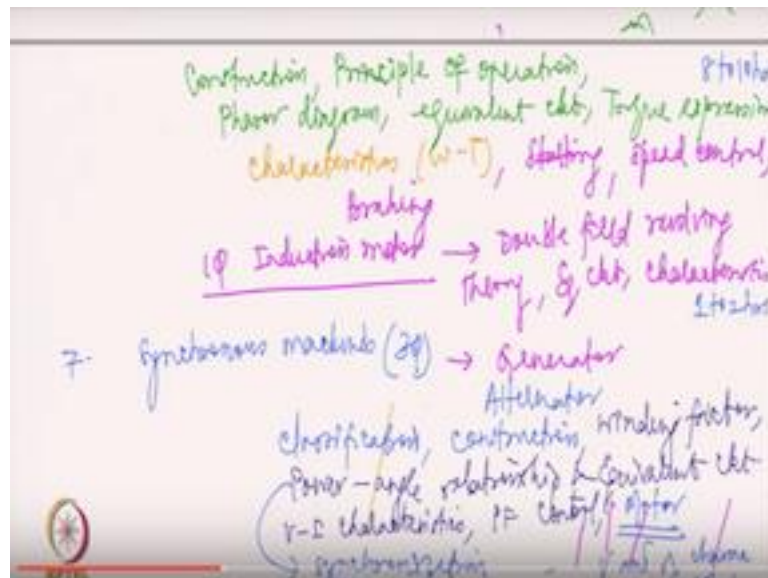 Construction, Principle of operation, 8 to 10 hr
Phasor diagram, equivalent ckt, Torque expression
Characteristics (ω-T), Starting, Speed control,
Braking
1φ Induction motor → Double field revolving
Theory, Eq ckt, characteristic
1 to 2 hrs
7. Synchronous machines (3φ) → Generator
Alternator
classification, construction, winding factor,
Power-angle relationship & Equivalent ckt
V-I characteristics, PF control, Motor
→ Synchronization